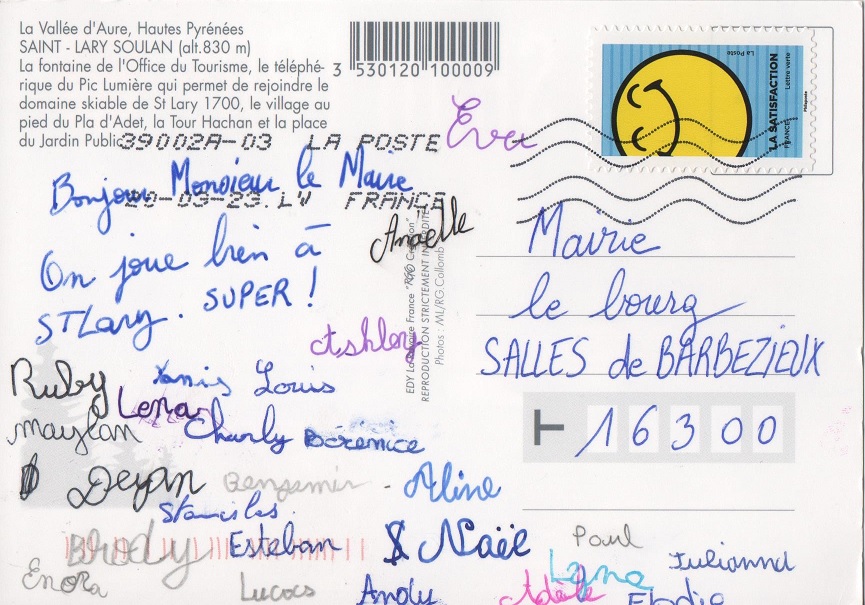 La Vallée d'Aure, Hautes Pyrénées
SAINT - LARY SOULAN (alt.830 m)
La fontaine de l'Office du Tourisme, le téléphé-
rique du Pic Lumière qui permet de rejoindre le
domaine skiable de St Lary 1700, le village au
pied du Pla d'Adet, la Tour Hachan et la place
du Jardin Public
3 530120 100009
39002A-03 LA POSTE
20-03-23 LW FRANCE
La Poste
LA SATISFACTION
FRANCE
Lettre verte
Philaposte
Eva
Bonjour Monsieur le Maire
Anaëlle
On joue bien à
ST Lary. SUPER !
Ashley
REPRODUCTION STRICTEMENT INTERDITE
Photos : ML/RG.Collomb
Mairie
le bourg
SALLES de BARBEZIEUX
T 16300
Ruby Yanis Louis
Lena
maylan Charly Bérénice
Deyan Benjamin - Aline
Stanislas
Brody Esteban Naïe Paul
Enora Lucas Andy Adèle Lyna Julianna
Elodie